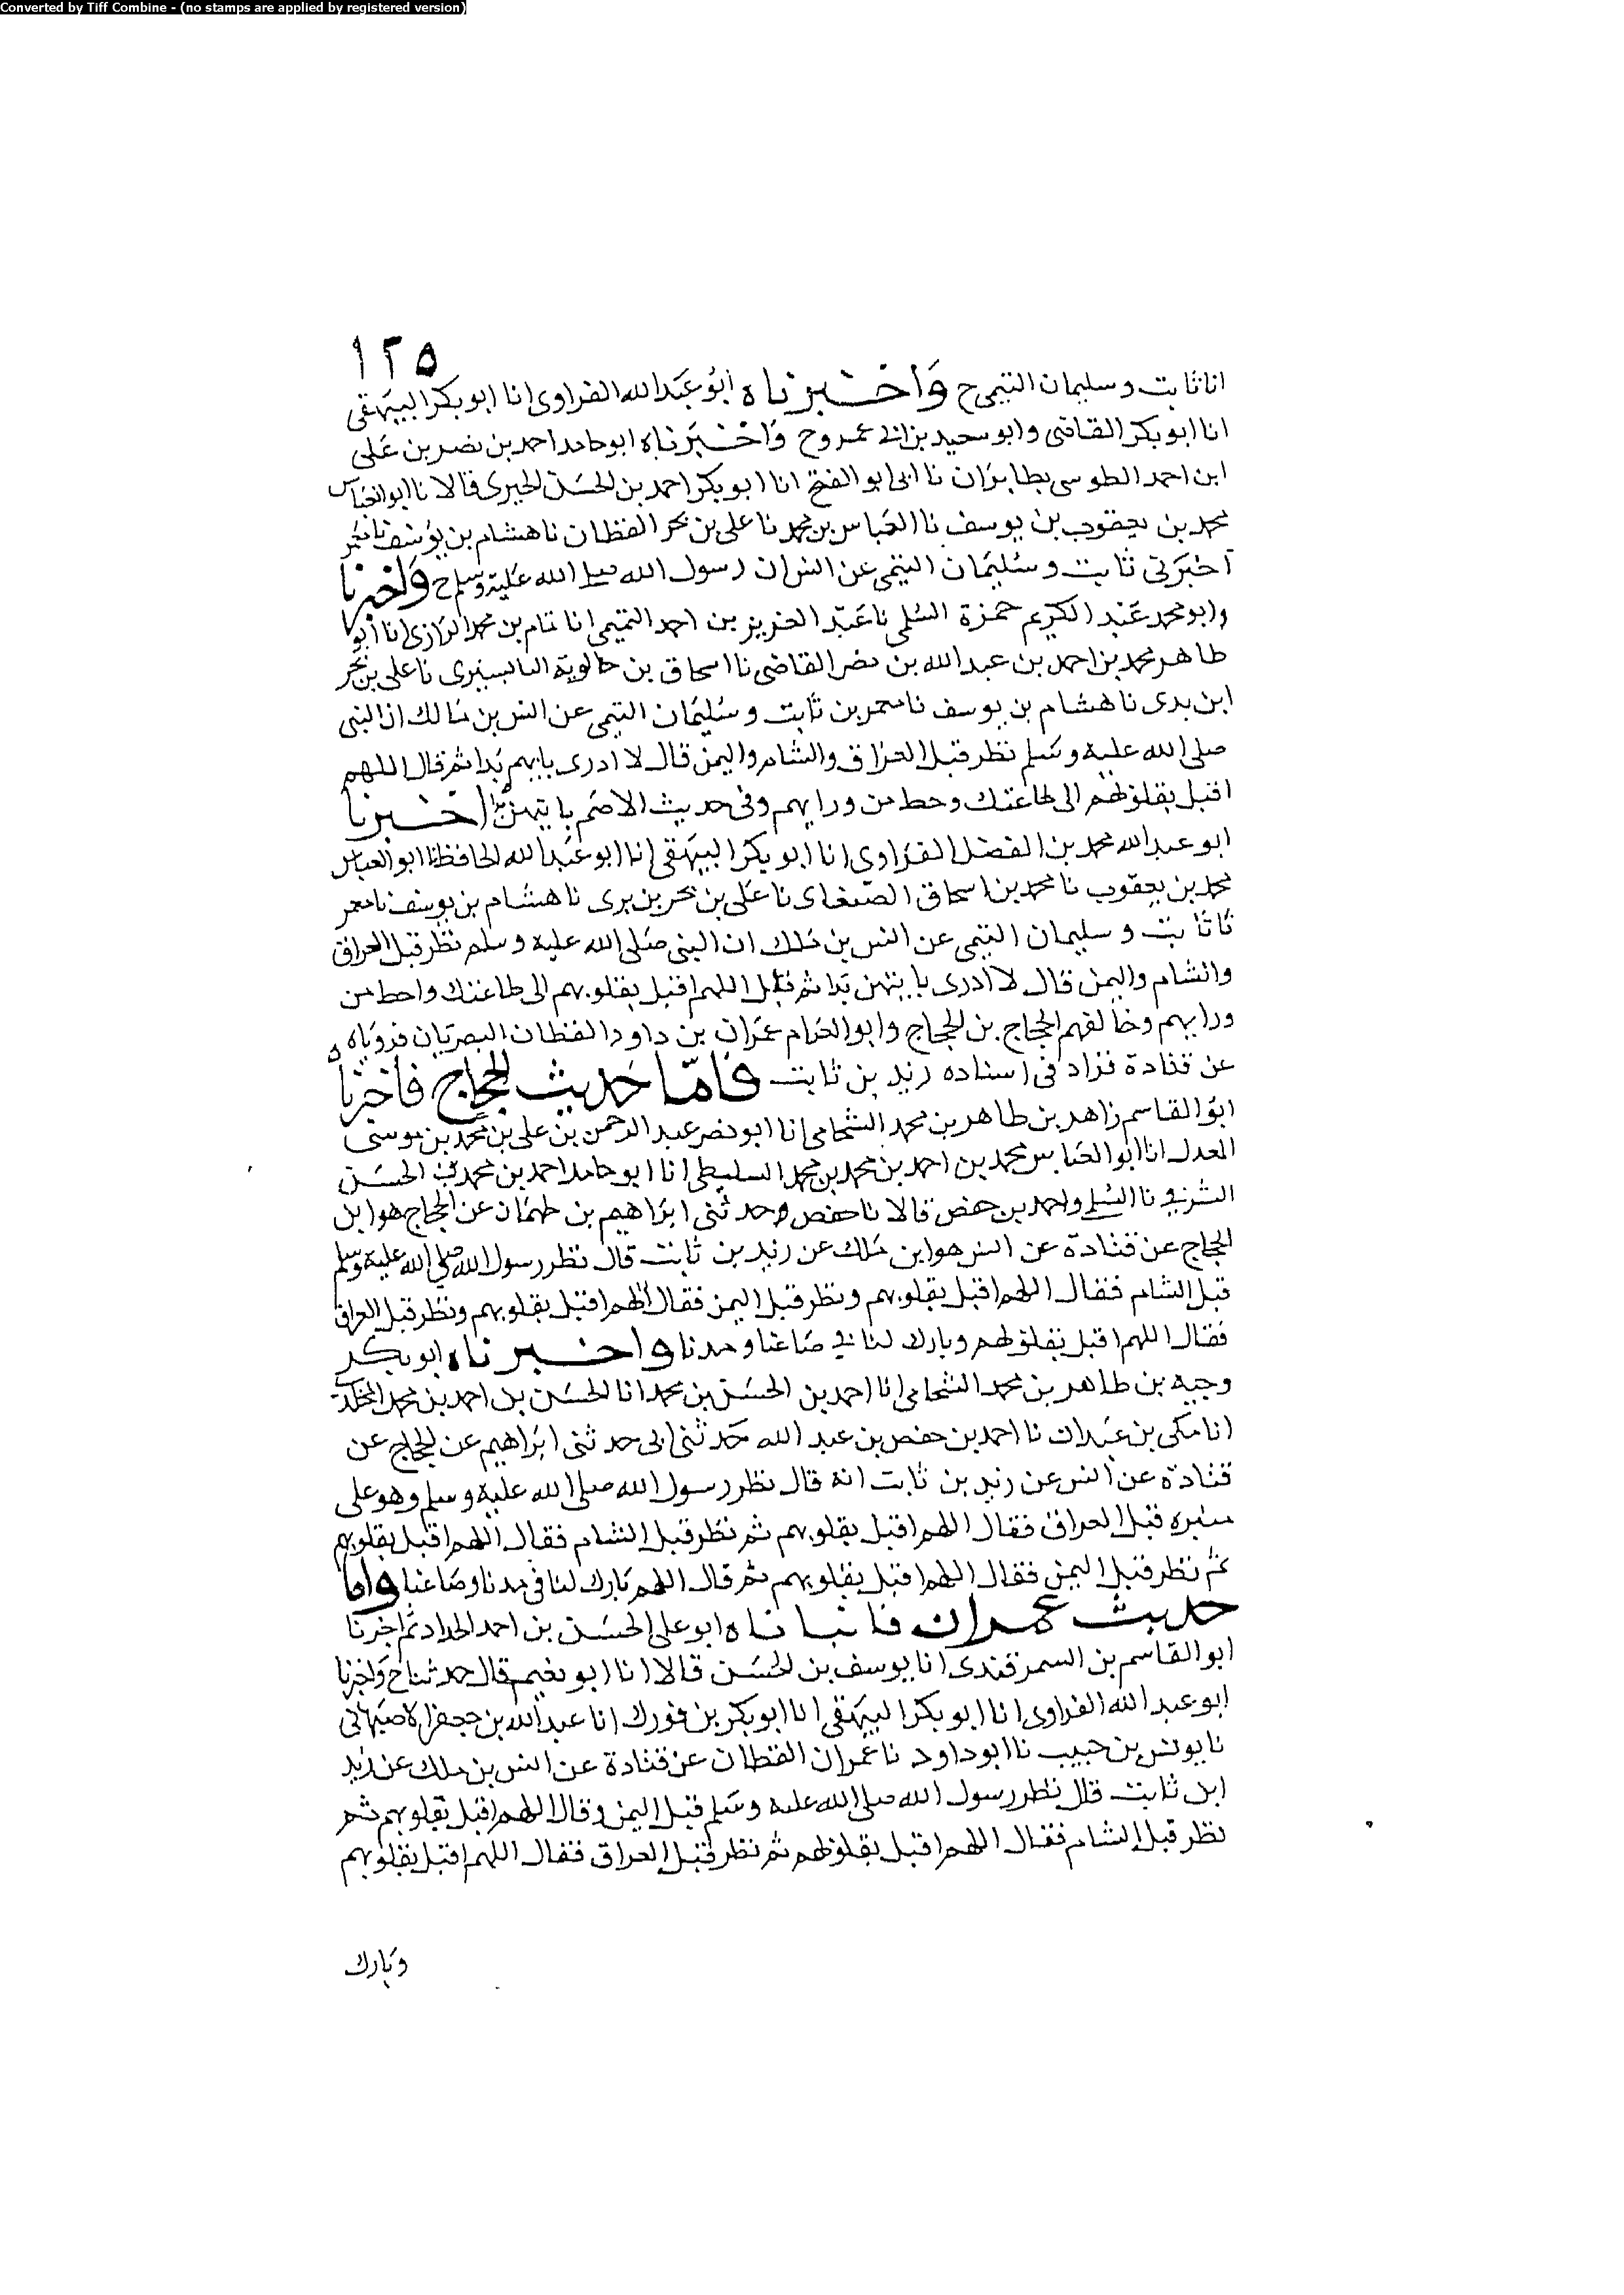 Converted by Tiff Combine - (no stamps are applied by registered version)
١٢٥
انا ثابت وسليمان التيمي ح وَاخْبرناه ابُو عَبد الله الفراوى انا ابو بكر البيهقى
انا ابو بكر القاضى وابو سعيد بن ابى عمرو ح وَاخْبَرناه ابو حامد احمد بن نصر بن عَلى
ابن احمد الطوسى بطابران نا ابى ابو الفتح انا ابو بكر احمد بن الحسن الحيرى قالا نا ابو العَباس
محمد بن يعقوب بن يوسف نا العباس بن محمد نا على بن بحر القطان نا هشام بن يوسف نا معمر
اخبَرنى ثابت وسُليمَان التيمى عن انس ان رسول الله صلى الله عَليه وسلم ح وَاخبرنا
وابو محمد عَبد الكريم حمزة السُلمى نا عَبد العزيز بن احمد التميمى انا تمام بن محمد الرازى انا ابو
طاهر محمد بن احمد بن عبد الله بن نصر القاضى نا اسحاق بن خالوية البابسيرى نا على بن بحر
ابن برى نا هشام بن يوسف نا معمر بن ثابت وسُليمَان التيمى عن انس بن مَالك ان النبى
صلى الله عليه وسَلم نظر قبل العراق والشام واليمن قال لا ادرى بايهم بَدا ثم قال اللهم
اقبل بقلوبهم الى طاعتك وحط من ورايهم وفى حديث الاصَم بايتهن بدا اخْبرنا
ابو عبد الله محمد بن الفضل الفرَاوى انا ابو بكر البيهَقى انا ابو عَبد الله الحافظ نا ابو العباس
محمد بن يعقوب نا محمد بن اسحاق الصَغانى نا عَلى بن بحر بن برى نا هشام بن يوسف نا معمر
نا ثابت وسليمان التيمى عن انس بن مَلك ان النبى صَلى الله عليه وسلم نظر قبل العراق
والشام واليمن قال لا ادرى بايتهن بَدا ثم قال اللهم اقبل بقلوبهم الى طاعتك واحط من
ورايهم وخالفهم الحجاج بن الحجاج وابو العَوام عمَران بن داود القطان البصريان فروَياه
عن قتادة فزاد فى اسناده زيد بن ثابت فَامّا حَديث الحجاج فاخبرنا
ابوُ القاسم زاهر بن طاهر بن محمد الشحامى انا ابو نصر عبد الرحمن بن على بن محمد بن موسى
المعدل انا ابو العبَاس محمد بن احمد بن محمد بن محمد السليطى انا ابو حامد احمد بن محمد بن الحسَن
الشرقى نا السُلمى واحمد بن حفص قالا نا حفص وحدثنى ابرَاهيم بن طهمَان عن الحجاج هو ابن
الحجاج عن قتَادة عن انس هو ابن مَلك عن زيد بن ثابت قال نظر رسول الله صلى الله عليه وسلم
قبل الشام فقال اللهم اقبل بقلوبهم ونظر قبل اليمن فقال اللهم اقبل بقلوبهم ونظر قبل العراق
فقال اللهم اقبل بقلوبهم وبارك لنا فى صَاعنا ومدنا واخبرناه ابو بكر
وجيه بن طاهر بن محمد الشحامى انا احمد بن الحسَن بن محمد انا الحسَن بن احمد بن محمد المخلدى
انا مكى بن عَبدان نا احمد بن حفص بن عبد الله حَدثنى ابى حدثنى ابرَاهيم عن الحجاج عن
قتادة عن انس عن زيد بن ثابت انه قال نظر رسول الله صلى الله عليه وسلم وهو على
منبره قبل العراق فقال اللهم اقبل بقلوبهم ثم نظر قبل الشام فقال اللهم اقبل بقلوبهم
ثم نظر قبل اليمن فقال اللهم اقبل بقلوبهم ثم قال اللهم بَارك لنا فى مدنا وصَاعنا واما
حديث عمران فانباناه ابو على الحسَن بن احمد الحداد ثم اخبرنا
ابو القاسم بن السمرقندى انا يوسف بن الحسَن قالا انا ابو نعيم قال حدثنا ح وَاخبرنا
ابو عبد الله الفراوى انا ابو بكر البيهَقى انا ابو بكر بن فورك انا عبد الله بن جعفر الاصبهانى
نا يونس بن حبيب نا ابو داود نا عمران القطان عن قتادة عن انس بن ملك عن زيد
ابن ثابت قال نظر رسول الله صلى الله عليه وسَلم قبل اليمن وقال اللهم اقبل بقلوبهم ثم
نظر قبل الشام فقال اللهم اقبل بقلوبهم ثم نظر قبل العراق فقال اللهم اقبل بقلوبهم
وَبارك